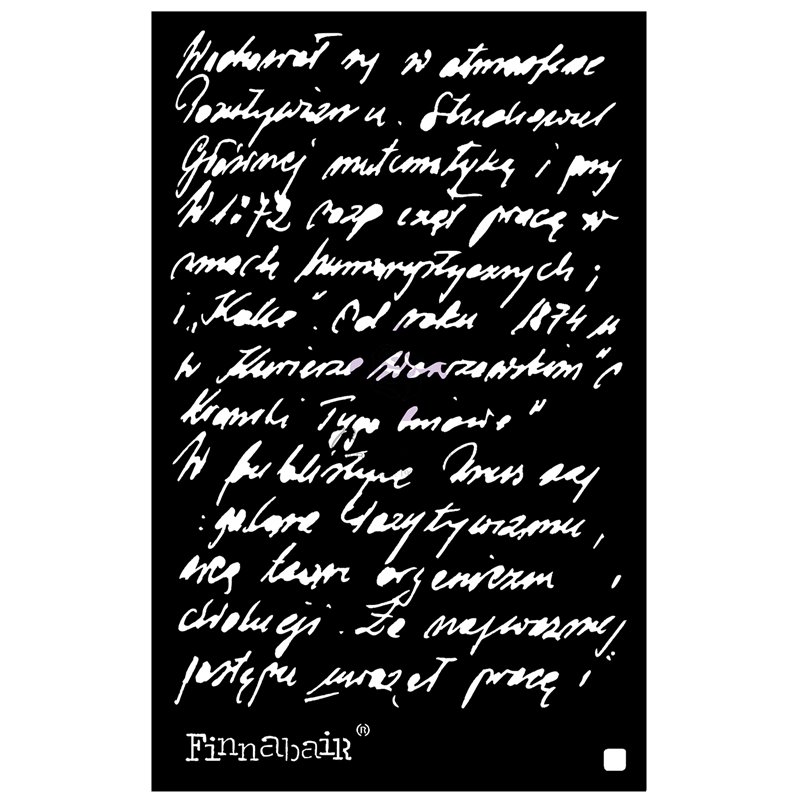 Wychował się w atmosferze
Pozytywizmu. Studiował
Głównej matematykę i przy
W 1872 rozp czął pracę w
smach humorystycznych ;
i „Kolce". Od roku 1874 u
w Kurierze Warszawskim" i
Kronski Tygo dniowe"
W publistyce Prus
: Pozytywizmu,
organizm i
ewolucji. Za najważniej
postępu uważał pracę i
Finnabair®